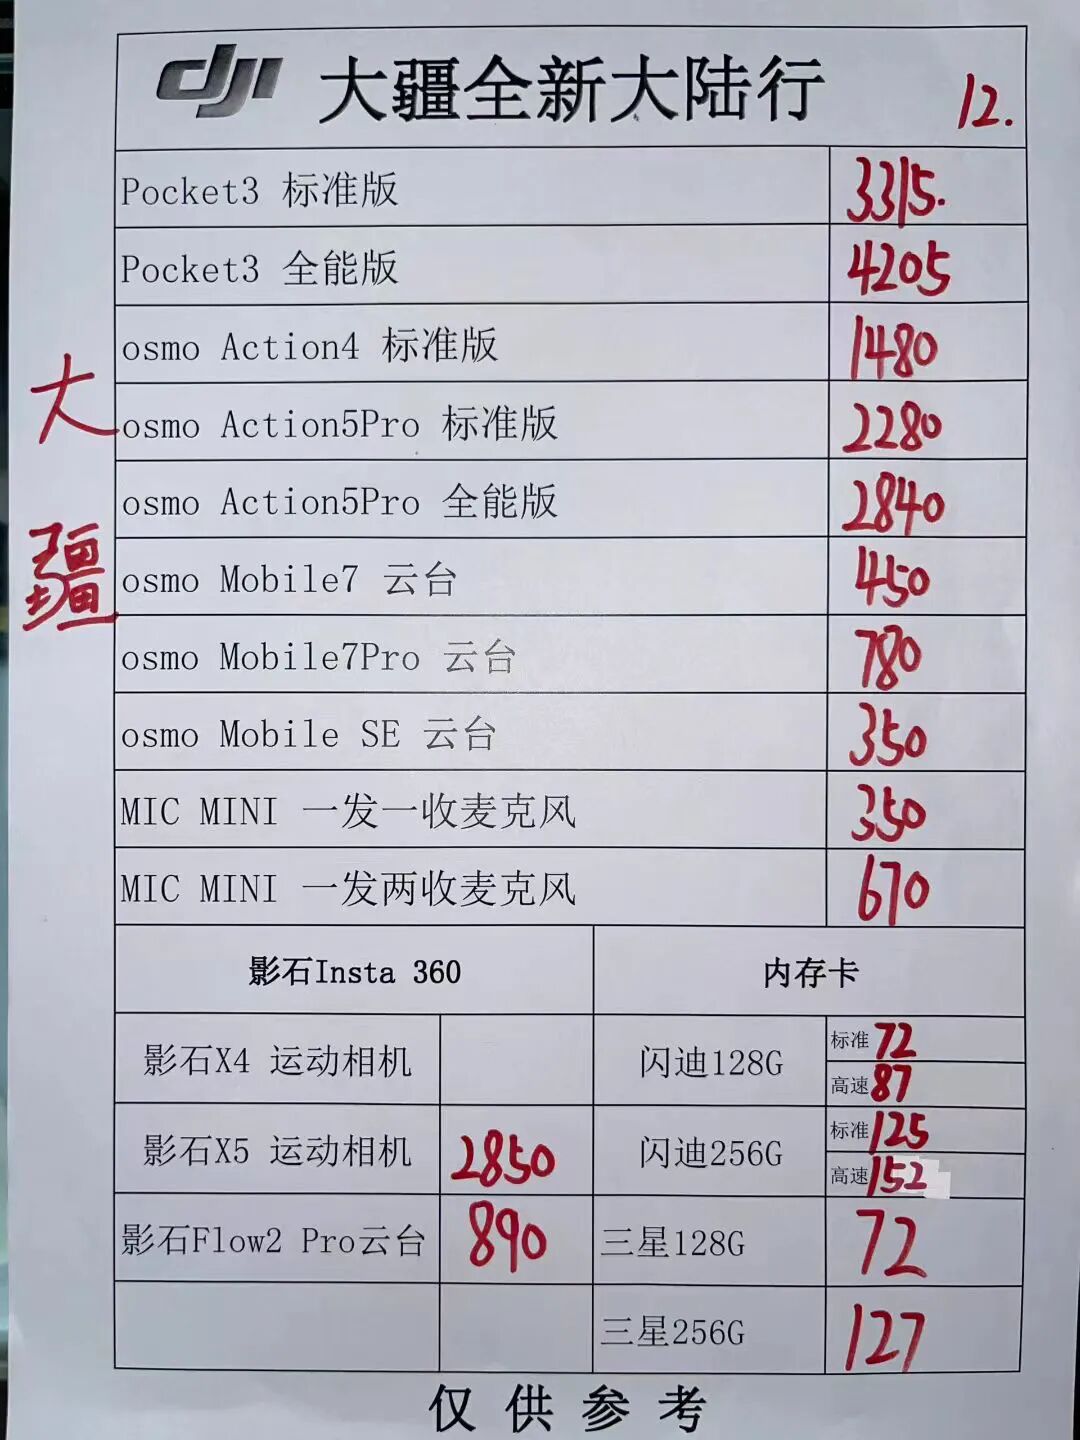 dji 大疆全新大陆行 12.
Pocket3 标准版 3315.
Pocket3 全能版 4205
osmo Action4 标准版 1480
大疆
osmo Action5Pro 标准版 2280
osmo Action5Pro 全能版 2840
osmo Mobile7 云台 450
osmo Mobile7Pro 云台 780
osmo Mobile SE 云台 350
MIC MINI 一发一收麦克风 350
MIC MINI 一发两收麦克风 670
影石Insta 360 内存卡
影石X4 运动相机 闪迪128G 标准 72
高速 87
影石X5 运动相机 2850 闪迪256G 标准 125
高速 152
影石Flow2 Pro云台 890 三星128G 72
三星256G 127
仅供参考